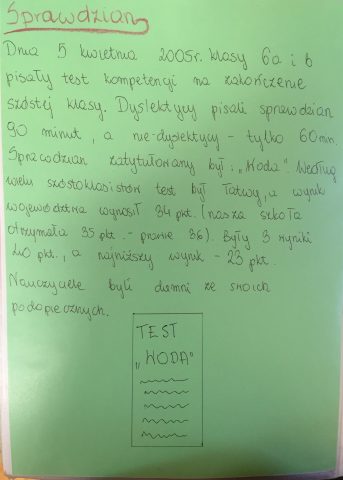 Sprawdzian
Dnia 5 kwietnia 2005r. klasy 6a i b
pisały test kompetencji na zakończenie
szóstej klasy. Dyslektycy pisali sprawdzian
90 minut, a nie-dyslektycy - tylko 60min.
Sprawdzian zatytułowany był: „Woda". Według
wielu szóstoklasistów test był łatwy, a wynik
województwa wynosił 34 pkt. (nasza szkoła
otrzymała 35 pkt. - prawie 36). Były 3 wyniki
40 pkt., a najniższy wynik - 23 pkt.
Nauczyciele byli dumni ze swoich
podopiecznych.
TEST
„WODA"